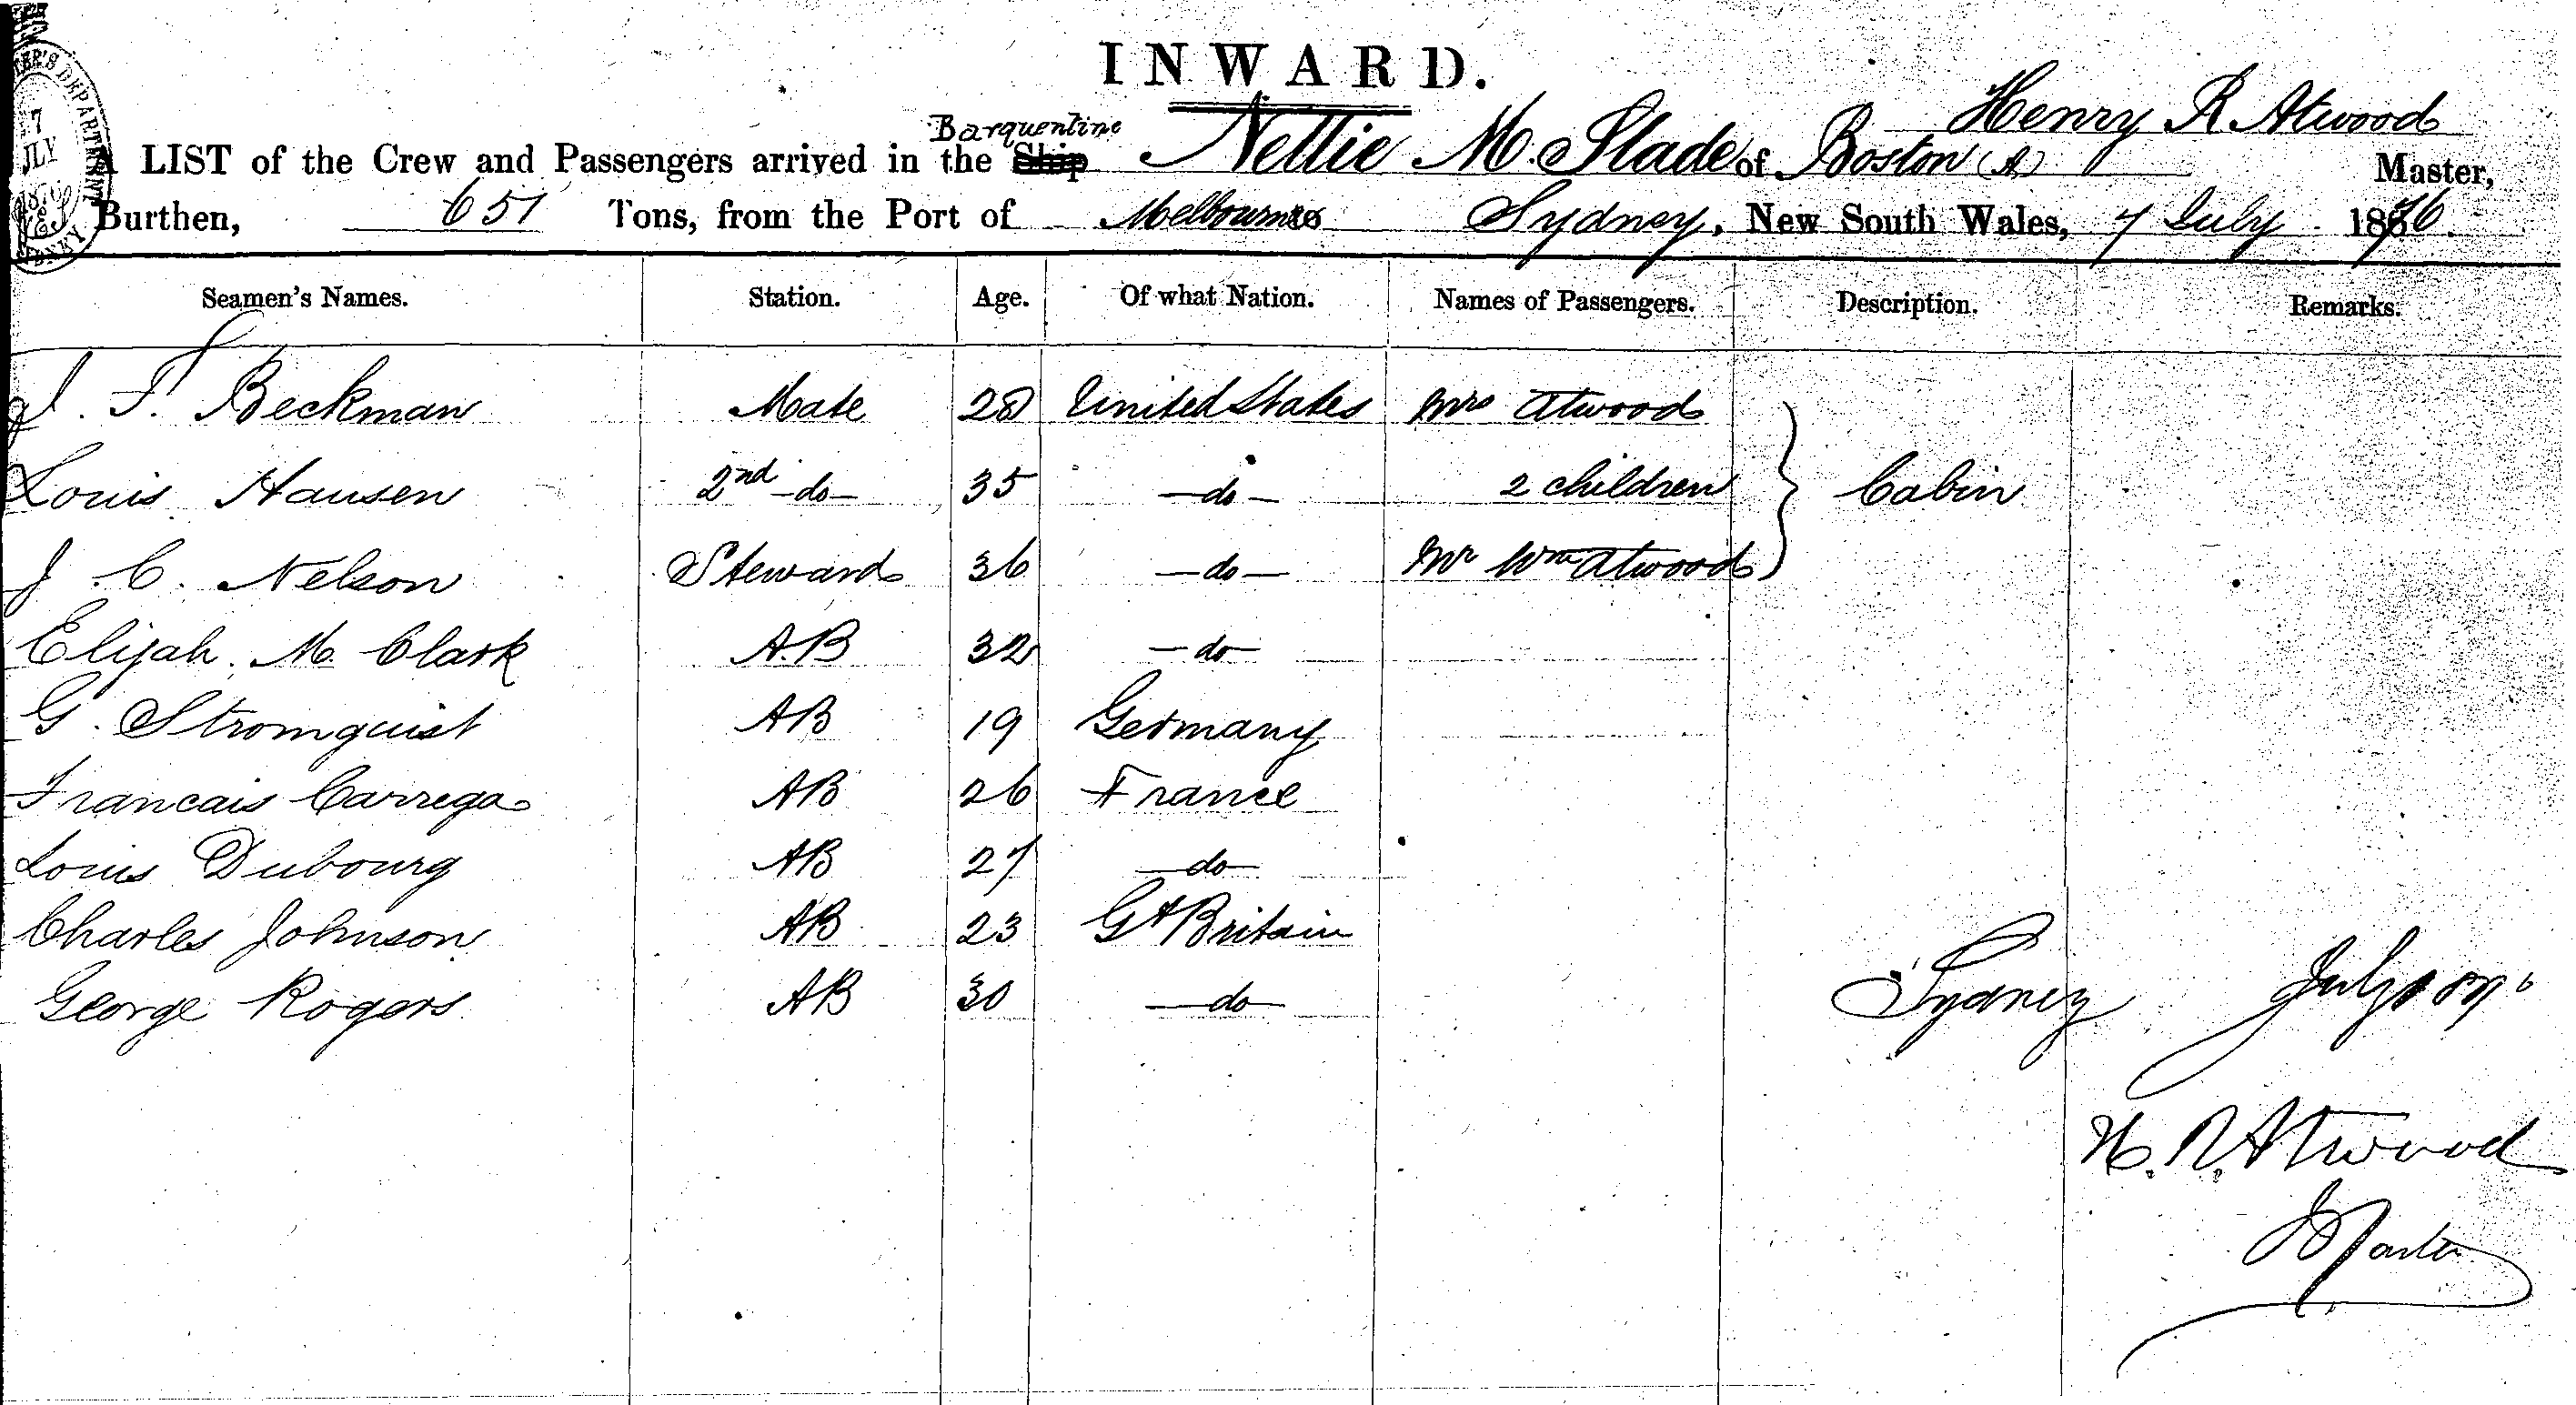 INWARD.
Henry R Atwood
Barquentine
A LIST of the Crew and Passengers arrived in the Ship Nettie M. Slade of Boston (A) Master,
Burthen, 651 Tons, from the Port of Melbourne Sydney, New South Wales, 7 July 1876.
7
JLY
Seamen's Names. Station. Age. Of what Nation. Names of Passengers. Description. Remarks.
J. F. Beckman Mate 28 United States Mrs Atwood
Louis Hausen 2nd -do- 35 -do- 2 children Cabin
J. C. Nelson Steward 36 -do- Mr Wm Atwood
Elijah. M. Clark A.B 32 -do-
G. Stromquist AB 19 Germany
Francais Carrega AB 26 France
Louis Dubourg AB 27 -do-
Charles Johnson AB 23 Gt Britain
George Rogers AB 30 -do-
Sydney July
H. R. Atwood
Master